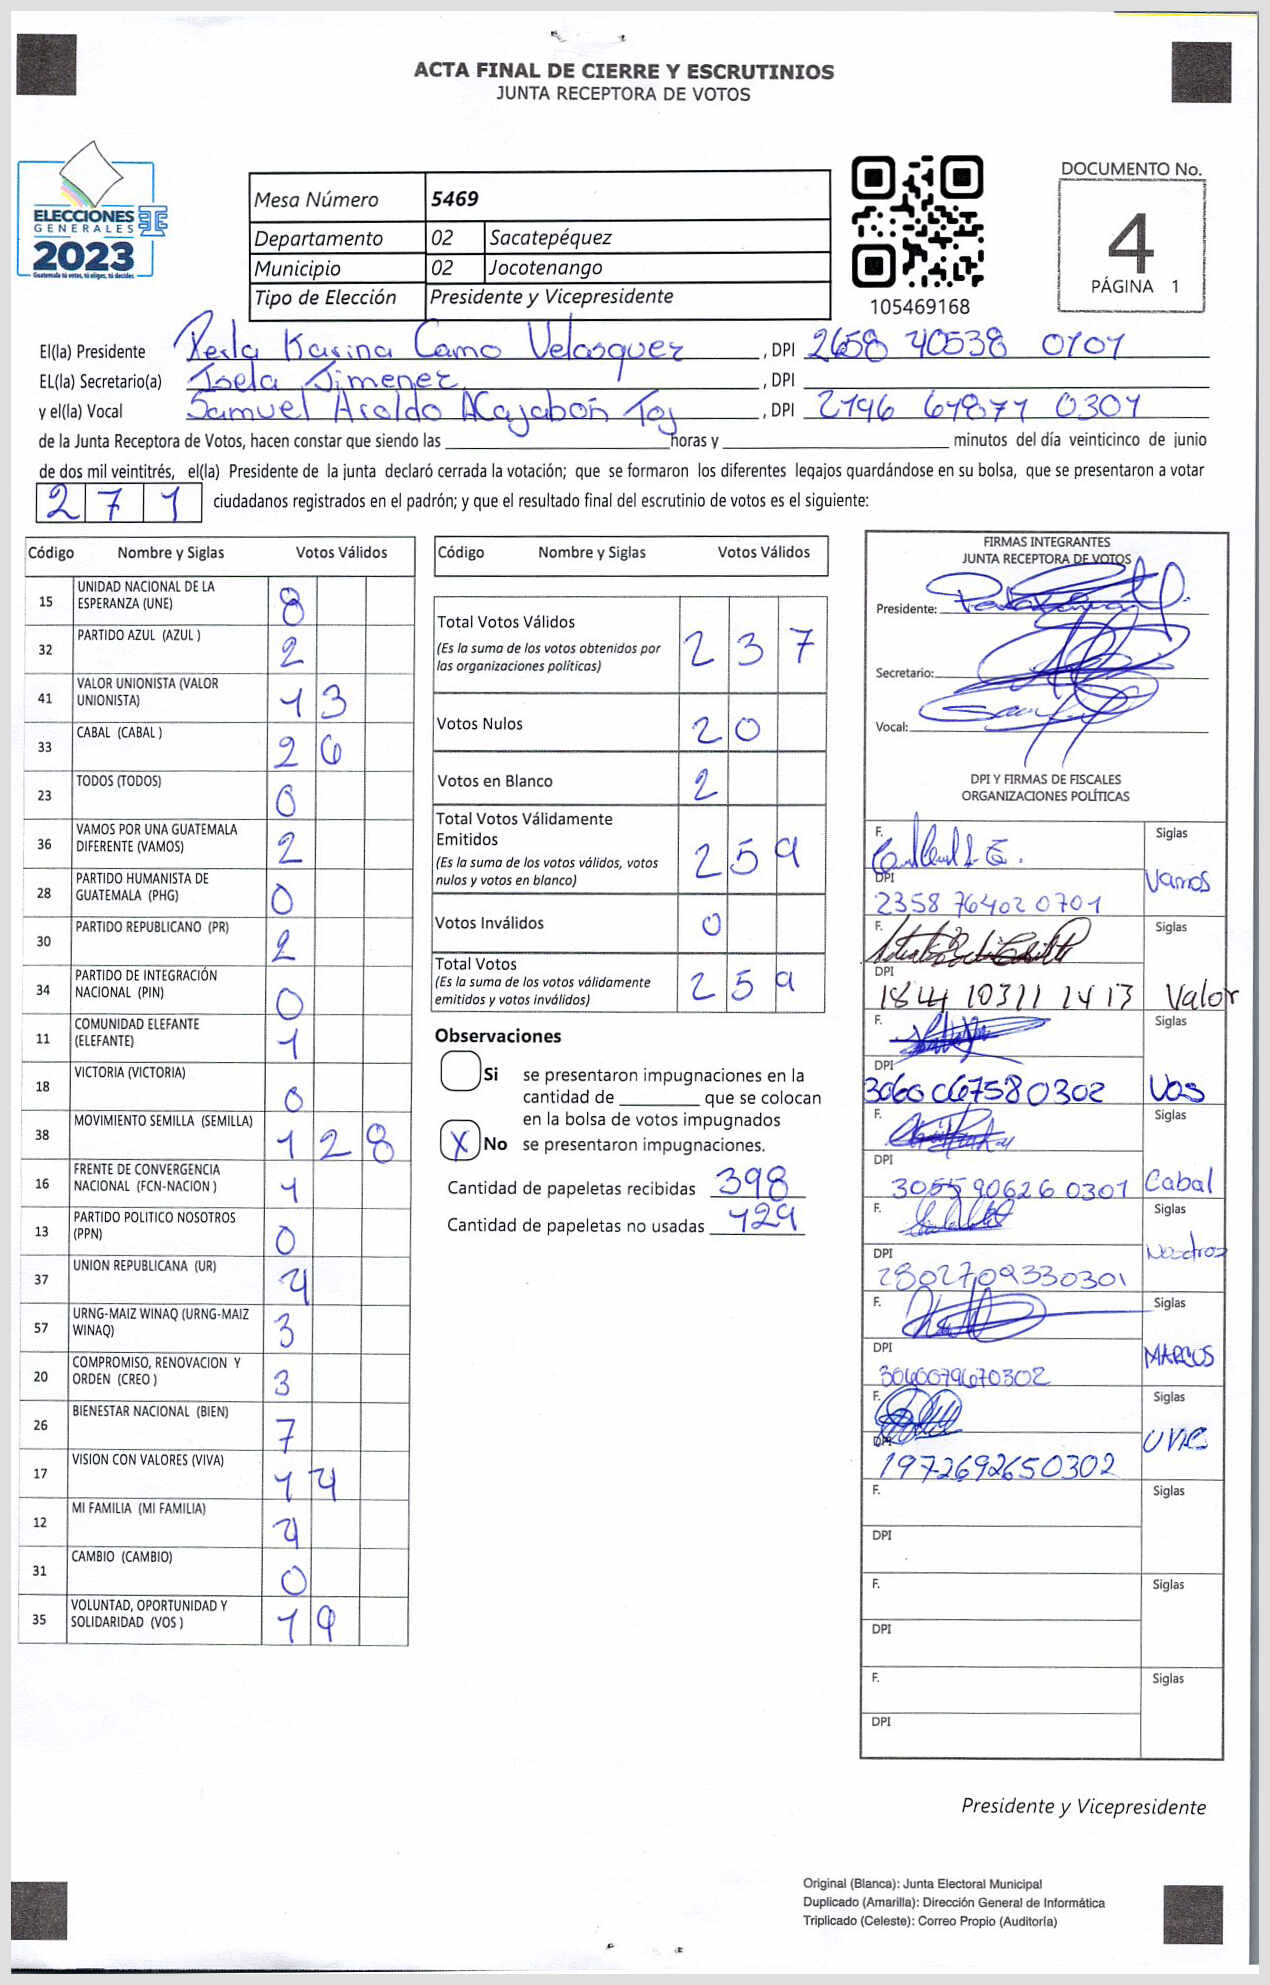 ACTA FINAL DE CIERRE Y ESCRUTINIOS
JUNTA RECEPTORA DE VOTOS
ELECCIONES
GENERALES
2023
Guatemala tú votas, tú eliges, tú decides
Mesa Número 5469
Departamento 02 Sacatepéquez
Municipio 02 Jocotenango
Tipo de Elección Presidente y Vicepresidente
105469168
DOCUMENTO No.
4
PÁGINA 1
El(la) Presidente Perla Karina Camo Velasquez, DPI 2658 40538 0101
EL(la) Secretario(a) Isela Jimenez, DPI
y el(la) Vocal Samuel Aroldo Toj, DPI 2196 61877 0301
de la Junta Receptora de Votos, hacen constar que siendo las ____ horas y ____ minutos del día veinticinco de junio
de dos mil veintitrés, el(la) Presidente de la junta declaró cerrada la votación; que se formaron los diferentes legajos guardándose en su bolsa, que se presentaron a votar
271 ciudadanos registrados en el padrón; y que el resultado final del escrutinio de votos es el siguiente:
Código Nombre y Siglas Votos Válidos
15 UNIDAD NACIONAL DE LA ESPERANZA (UNE) 8
32 PARTIDO AZUL (AZUL ) 2
41 VALOR UNIONISTA (VALOR UNIONISTA) 13
33 CABAL (CABAL ) 26
23 TODOS (TODOS) 0
36 VAMOS POR UNA GUATEMALA DIFERENTE (VAMOS) 2
28 PARTIDO HUMANISTA DE GUATEMALA (PHG) 0
30 PARTIDO REPUBLICANO (PR) 2
34 PARTIDO DE INTEGRACIÓN NACIONAL (PIN) 0
11 COMUNIDAD ELEFANTE (ELEFANTE) 1
18 VICTORIA (VICTORIA) 0
38 MOVIMIENTO SEMILLA (SEMILLA) 128
16 FRENTE DE CONVERGENCIA NACIONAL (FCN-NACION ) 1
13 PARTIDO POLITICO NOSOTROS (PPN) 0
37 UNION REPUBLICANA (UR) 4
57 URNG-MAIZ WINAQ (URNG-MAIZ WINAQ) 3
20 COMPROMISO, RENOVACION Y ORDEN (CREO ) 3
26 BIENESTAR NACIONAL (BIEN) 7
17 VISION CON VALORES (VIVA) 14
12 MI FAMILIA (MI FAMILIA) 4
31 CAMBIO (CAMBIO) 0
35 VOLUNTAD, OPORTUNIDAD Y SOLIDARIDAD (VOS ) 19
Código Nombre y Siglas Votos Válidos
Total Votos Válidos 237
(Es la suma de los votos obtenidos por las organizaciones políticas)
Votos Nulos 20
Votos en Blanco 2
Total Votos Válidamente Emitidos 259
(Es la suma de los votos válidos, votos nulos y votos en blanco)
Votos Inválidos 0
Total Votos 259
(Es la suma de los votos válidamente emitidos y votos inválidos)
Observaciones
Si se presentaron impugnaciones en la
cantidad de ____ que se colocan
en la bolsa de votos impugnados
X No se presentaron impugnaciones.
Cantidad de papeletas recibidas 398
Cantidad de papeletas no usadas 129
FIRMAS INTEGRANTES
JUNTA RECEPTORA DE VOTOS
Presidente:
Secretario:
Vocal:
DPI Y FIRMAS DE FISCALES
ORGANIZACIONES POLÍTICAS
F. Siglas
DPI Vamos
2358 76402 0701
F. Siglas
DPI
1844 10311 1413 Valor
F. Siglas
DPI
3060067580302 VOS
F. Siglas
DPI
3055906260301 Cabal
F. Siglas
DPI Nosotros
2802709330301
F. Siglas
DPI MARCUS
3060079670302
F. Siglas
DPI
1972692650302
F. Siglas
DPI
F. Siglas
DPI
F. Siglas
DPI
Presidente y Vicepresidente
Original (Blanca): Junta Electoral Municipal
Duplicado (Amarilla): Dirección General de Informática
Triplicado (Celeste): Correo Propio (Auditoría)